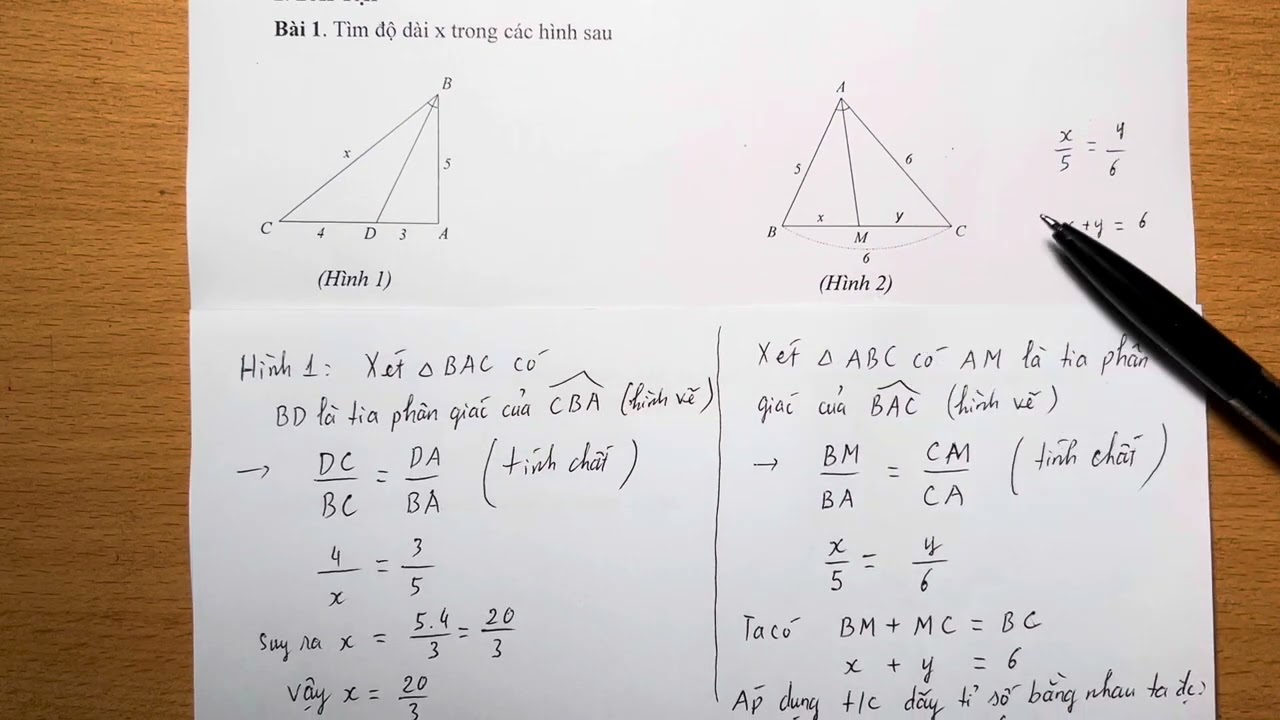 Bài 1. Tìm độ dài x trong các hình sau
B
x
5
C
4
D
3
A
(Hình 1)
A
5
6
x
y
B
M
C
6
(Hình 2)
x/5 = y/6
+y = 6
Hình 1: Xét △ BAC có
BD là tia phân giác của CBA (hình vẽ)
→ DC/BC = DA/BA (tính chất)
4/x = 3/5
Suy ra x = 5.4/3 = 20/3
Vậy x = 20/3
Xét △ ABC có AM là tia phân
giác của BAC (hình vẽ)
→ BM/BA = CM/CA (tính chất)
x/5 = y/6
Ta có BM + MC = BC
x + y = 6
Áp dụng t/c dãy tỉ số bằng nhau ta đc: